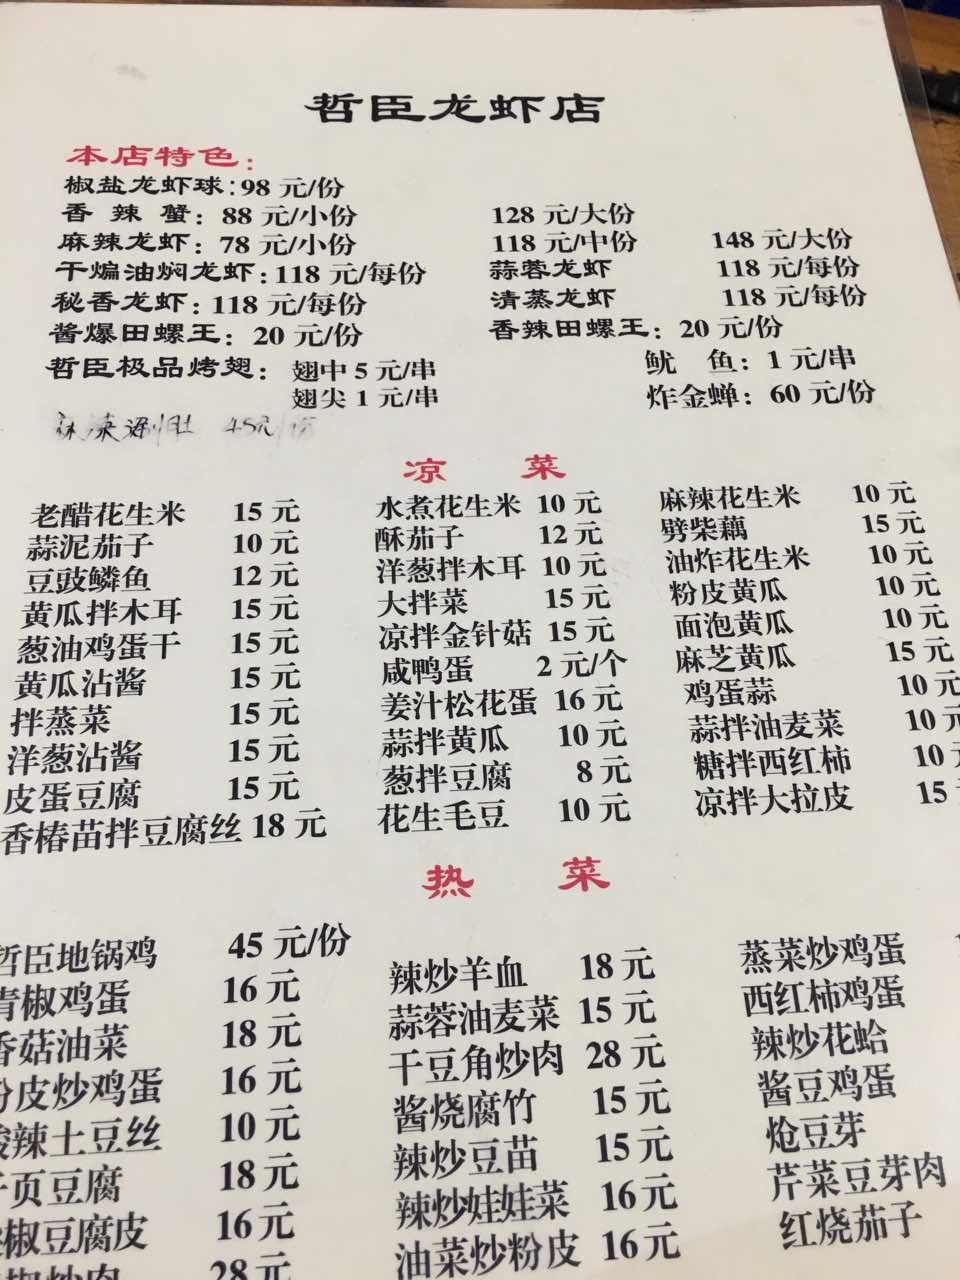 哲臣龙虾店
本店特色：
椒盐龙虾球：98 元/份
香 辣 蟹：88 元/小份 128 元/大份
麻辣龙虾：78 元/小份 118 元/中份 148 元/大份
干煸油焖龙虾：118 元/每份 蒜蓉龙虾 118 元/每份
秘香龙虾：118 元/每份 清蒸龙虾 118 元/每份
酱爆田螺王：20 元/份 香辣田螺王：20 元/份
哲臣极品烤翅：翅中 5 元/串 鱿 鱼：1 元/串
翅尖 1 元/串 炸金蝉：60 元/份
45元
凉 菜
老醋花生米 15 元 水煮花生米 10 元 麻辣花生米 10 元
蒜泥茄子 10 元 酥茄子 12 元 劈柴藕 15 元
豆豉鳞鱼 12 元 洋葱拌木耳 10 元 油炸花生米 10 元
黄瓜拌木耳 15 元 大拌菜 15 元 粉皮黄瓜 10 元
葱油鸡蛋干 15 元 凉拌金针菇 15 元 面泡黄瓜 10 元
黄瓜沾酱 15 元 咸鸭蛋 2 元/个 麻芝黄瓜 15 元
拌蒸菜 15 元 姜汁松花蛋 16 元 鸡蛋蒜 10 元
洋葱沾酱 15 元 蒜拌黄瓜 10 元 蒜拌油麦菜 10 元
皮蛋豆腐 15 元 葱拌豆腐 8 元 糖拌西红柿 10
香椿苗拌豆腐丝 18 元 花生毛豆 10 元 凉拌大拉皮 15
热 菜
哲臣地锅鸡 45 元/份 辣炒羊血 18 元 蒸菜炒鸡蛋
青椒鸡蛋 16 元 蒜蓉油麦菜 15 元 西红柿鸡蛋
香菇油菜 18 元 干豆角炒肉 28 元 辣炒花蛤
粉皮炒鸡蛋 16 元 酱烧腐竹 15 元 酱豆鸡蛋
酸辣土豆丝 10 元 辣炒豆苗 15 元 炝豆芽
千页豆腐 18 元 辣炒娃娃菜 16 元 芹菜豆芽肉
椒豆腐皮 16 元 油菜炒粉皮 16 元 红烧茄子
椒炒肉 28 元